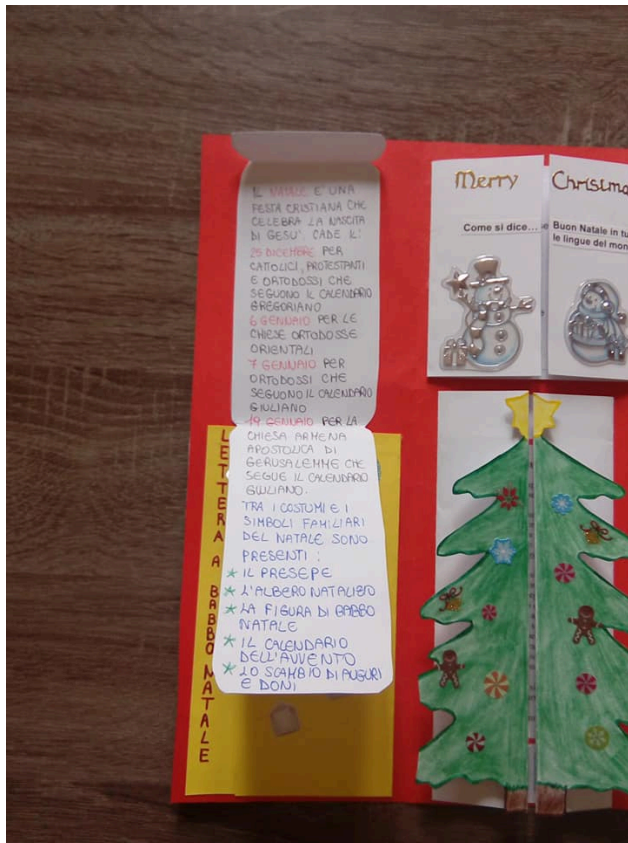 IL NATALE E' UNA
FESTA CRISTIANA CHE
CELEBRA LA NASCITA
DI GESU'. CADE IL:
25 DICEMBRE PER
CATTOLICI, PROTESTANTI
E ORTODOSSI CHE
SEGUONO IL CALENDARIO
GREGORIANO
6 GENNAIO PER LE
CHIESE ORTODOSSE
ORIENTALI
7 GENNAIO PER
ORTODOSSI CHE
SEGUONO IL CALENDARIO
GIULIANO
19 GENNAIO PER LA
CHIESA ARMENA
APOSTOLICA DI
GERUSALEMME CHE
SEGUE IL CALENDARIO
GIULIANO.
TRA I COSTUMI E I
SIMBOLI FAMILIARI
DEL NATALE SONO
PRESENTI:
* IL PRESEPE
* L'ALBERO NATALIZIO
* LA FIGURA DI BABBO
NATALE
* IL CALENDARIO
DELL'AVVENTO
* LO SCAMBIO DI AUGURI
E DONI
LETTERA A BABBO NATALE
Merry Christma
Come si dice...
Buon Natale in tu
le lingue del mon